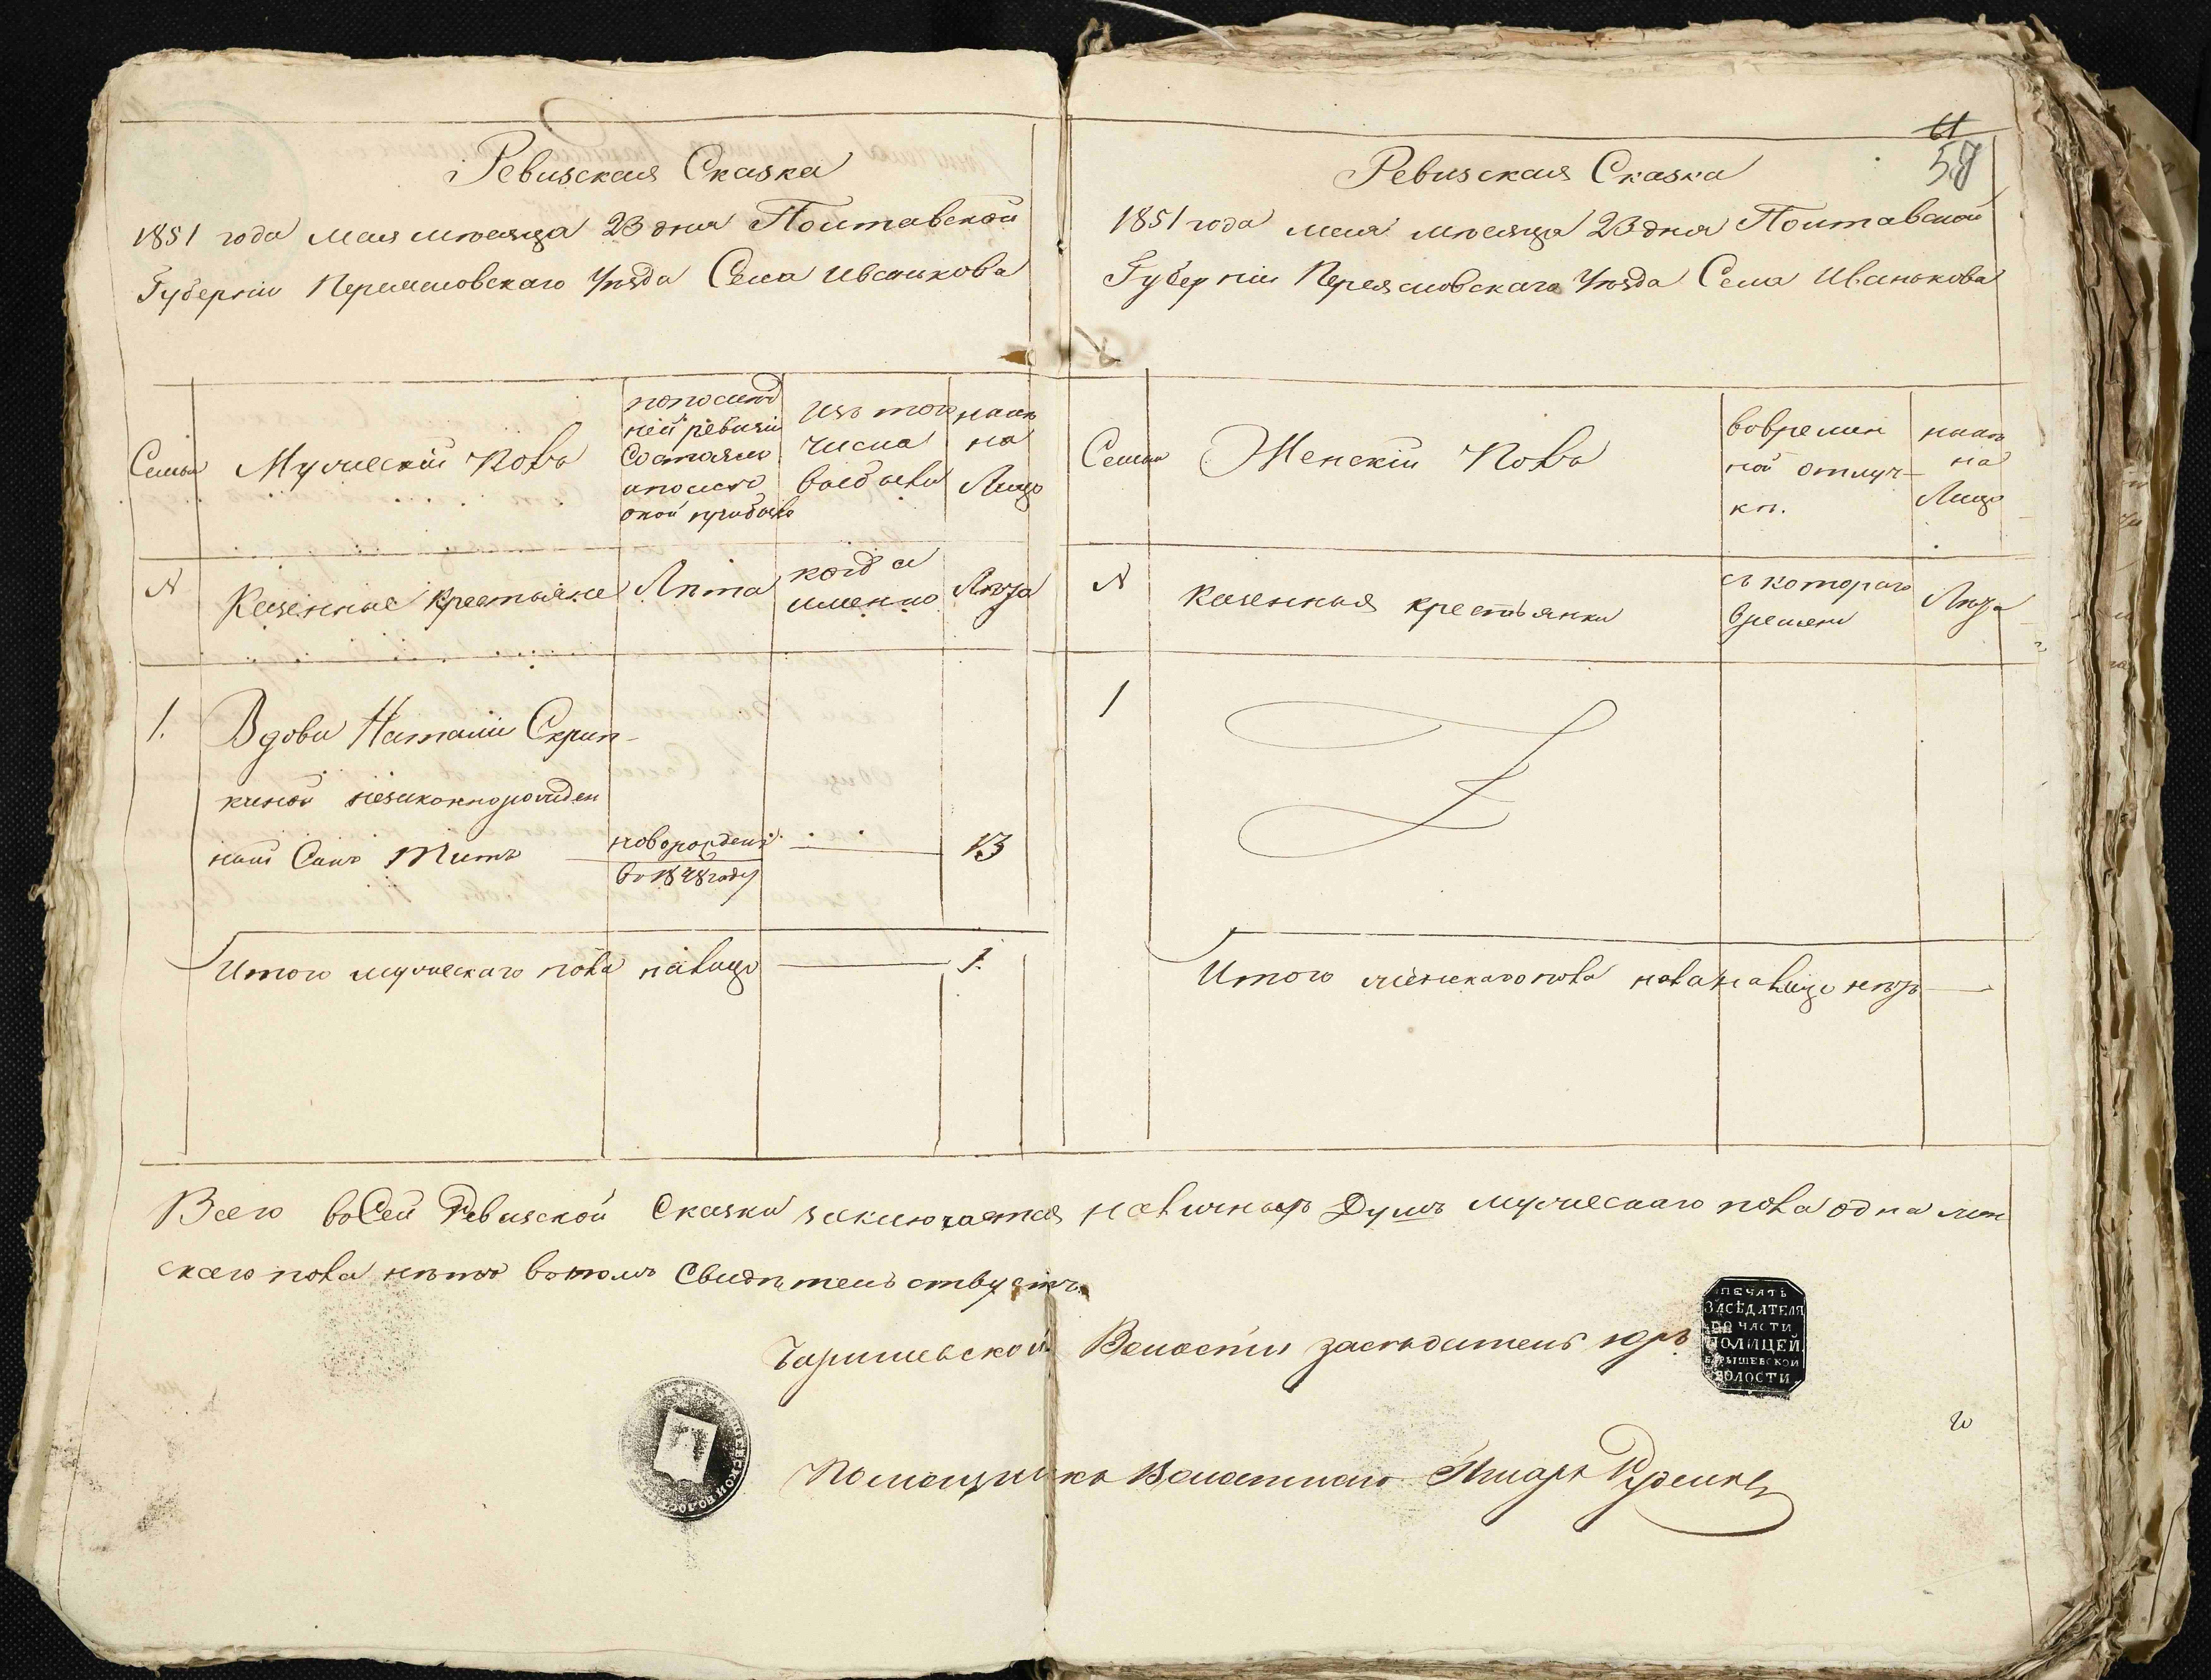 Ревизская Сказка
1851 года мая месяца 23 дня Полтавской
Губерніи Переяславскаго Уѣзда Села Иванкова
Семьи
Мужескій Полъ
попослѣд
ней ревизіи
Состояло
ипослѣ
оной прибыло
Изъ того
числа
выбыло
нынѣ
на
Лицо
№
Казенные Крестьяне
Лѣта
когда
именно
Лѣта
1.
Вдовы Наталіи Скрип-
киной незаконнорожден
ный Сынъ Титъ
новорожденъ
во 1848 году
13
Итого мужескаго пола налицо
1.
61
58
Ревизская Сказка
1851 года мая месяца 23 дня Полтавской
Губерніи Переясловскаго Уѣзда Села Иванькова
Семьи
Женскій Полъ
вовремен
ной отлуч-
кѣ.
нынѣ
на
Лицо
№
Казенныя крестьянки
съ котораго
времени
Лѣта
1
Итого женскаго пола налицо нѣтъ
Всего восей Ревизской Сказки заключается наличныхъ Душъ мужескаго пола одна жен
скаго пола нѣтъ вотомъ Свидѣтельствуетъ
Барышевской Волости засѣдатель
ПЕЧАТЬ
ЗАСѢДАТЕЛЯ
ПО ЧАСТИ
ПОЛИЦЕЙ
БАРЫШЕВСКОЙ
ВОЛОСТИ
Помощникъ Волостнаго Писаря